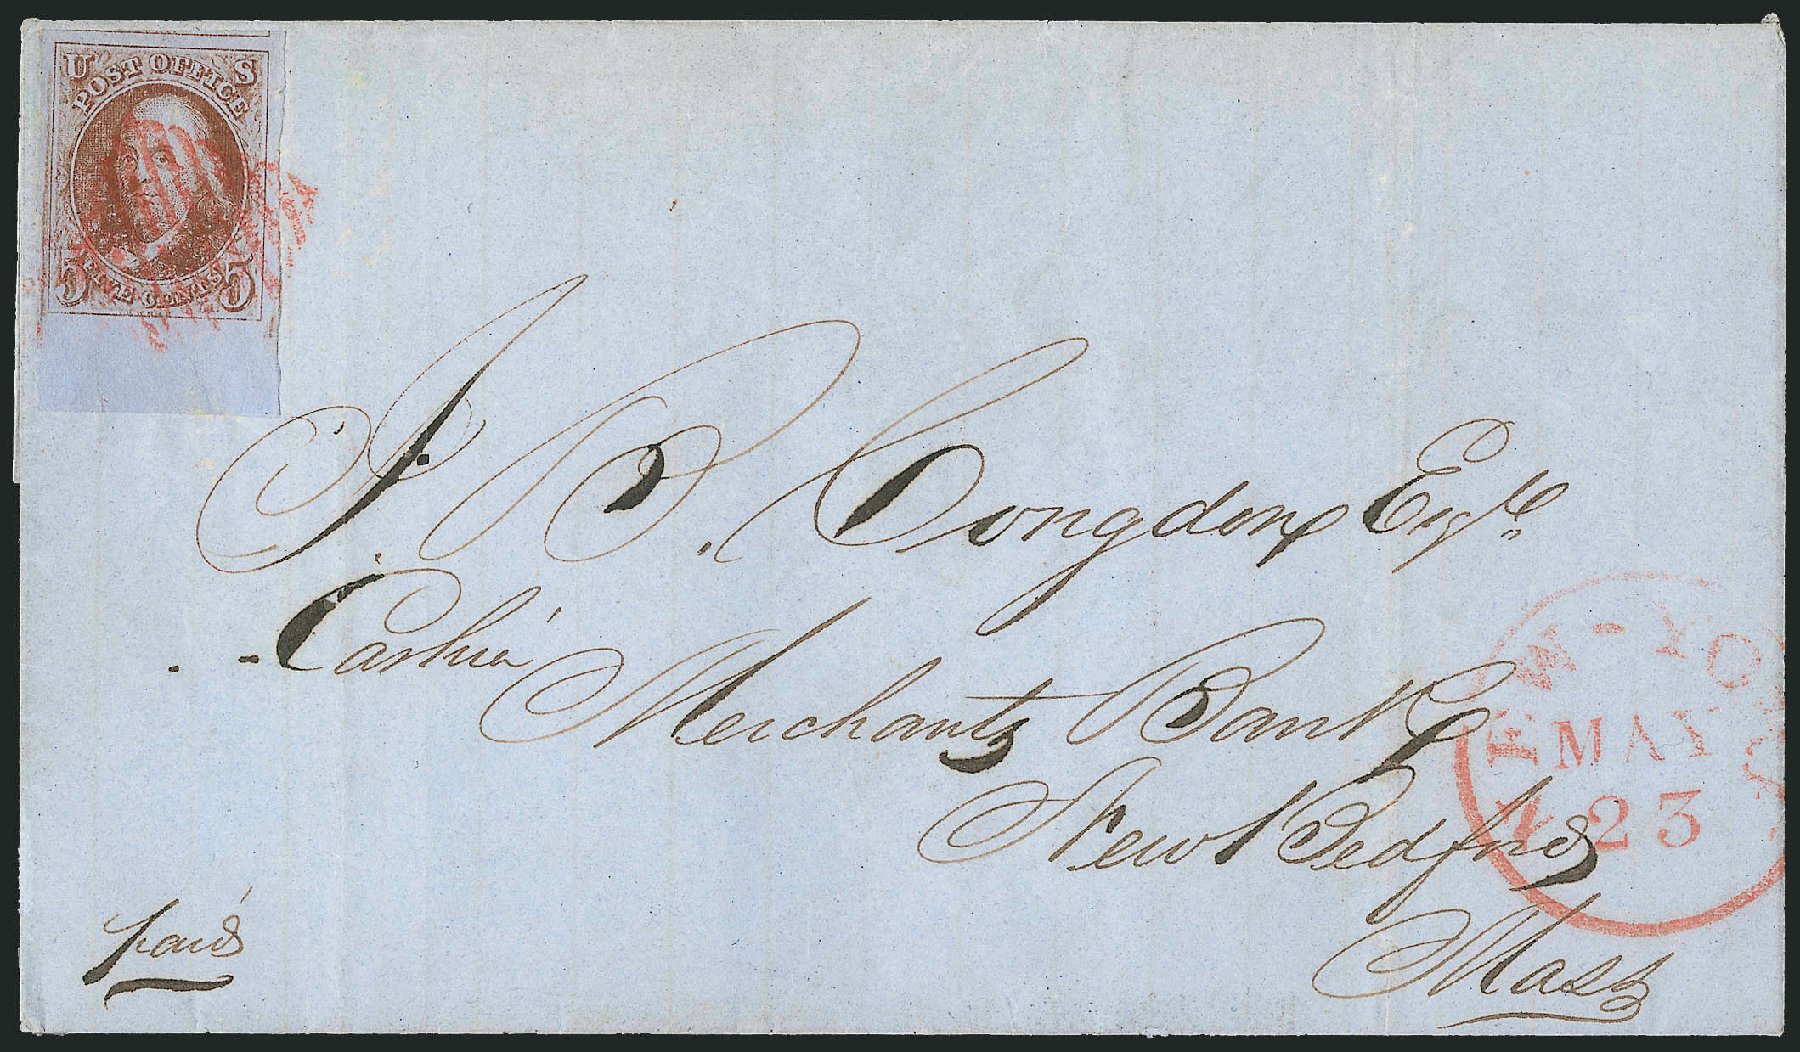 U S
POST OFFICE
5 FIVE CENTS 5
J. B. Congdon Esqre.
Cashier
Merchants Bank
New Bedford
Mass
paid
NEW-YORK
MAY
23